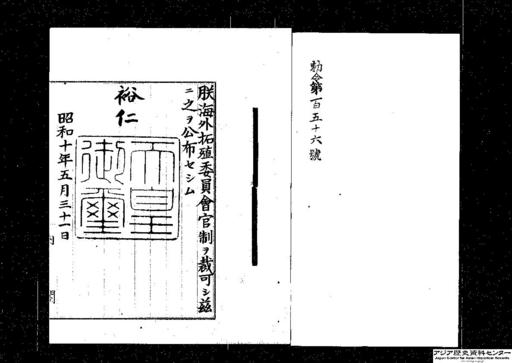 勅令第一百五十六號
朕海外拓殖委員會官制ヲ裁可シ茲
ニ之ヲ公布セシム
裕仁
天皇御璽
昭和十年五月三十一日
内閣
アジア歴史資料センター
Japan Center for Asian Historical Records